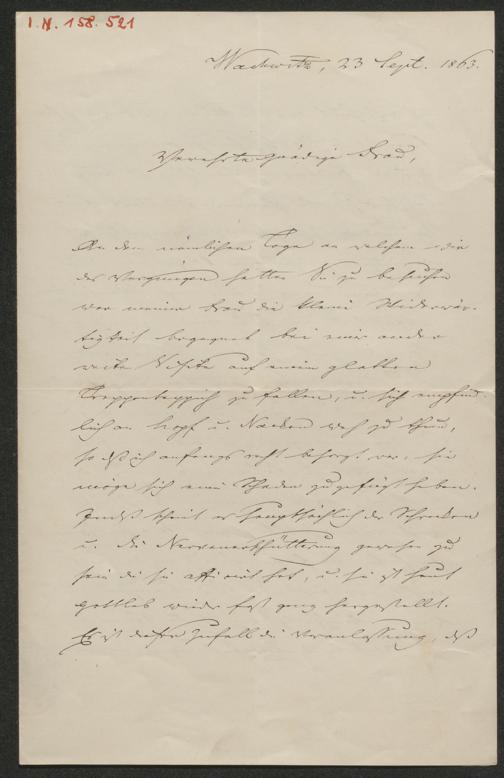 I.N. 158.521
Wachwitz, 23 Sept. 1863.
Verehrte gnädige Frau,
An dem nämlichen Tage an welchem wir
das Vergnügen hatten Sie zu besuchen
war meiner Frau die kleine Widerwär-
tigkeit begegnet bei einer ander
weiten Visite auf einem glatten
Treppenteppich zu fallen, u. sich empfind-
lich an Kopf u. Nacken weh zu thun,
so dß ich anfangs recht besorgt war, sie
möge sich einen Schaden zugefügt haben.
Indeß scheint es hauptsächlich der Schrecken
u. die Nervenerschütterung gewesen zu
sein die sie afficirt hat, u. sie ist heut
gottlob wieder fast ganz hergestellt.
Es ist dieser Zufall die Veranlassung, daß